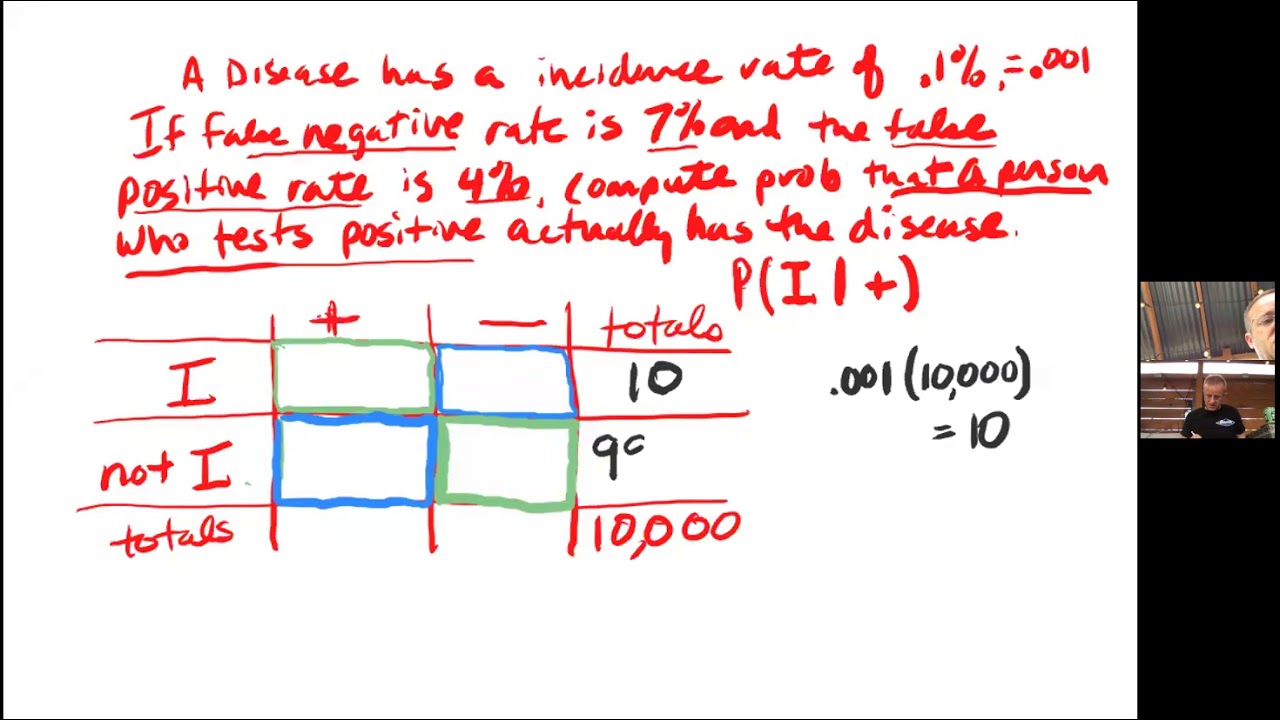 A Disease has a incidence rate of .1%, = .001
If false negative rate is 7% and the false
positive rate is 4%, compute prob that a person
who tests positive actually has the disease.
P(I | +)
+ — totals
I 10
.001 (10,000)
= 10
not I 99
totals 10,000